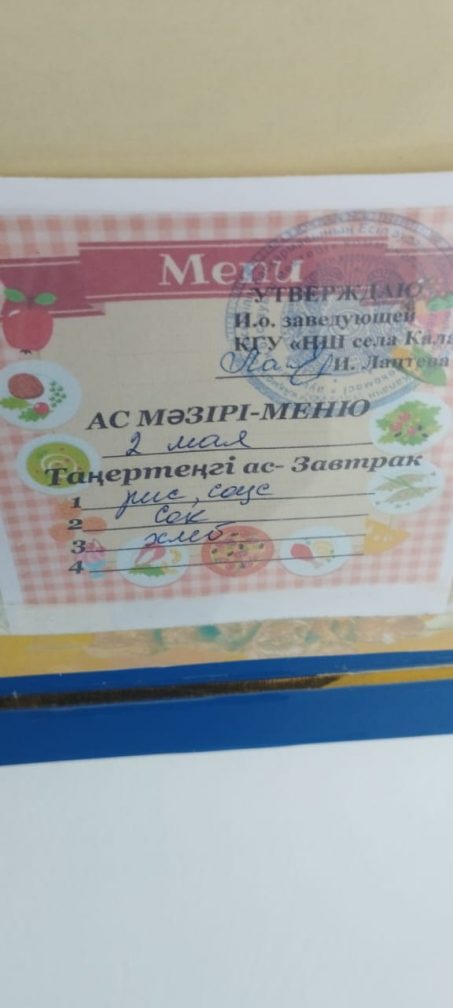 Menu
УТВЕРЖДАЮ
И.о. заведующей
КГУ «НШ села Кала
И. Лаптева
АС МӘЗІРІ-МЕНЮ
2 мая
Таңертеңгі ас- Завтрак
1 рис, соус
2 сок
3 хлеб
4